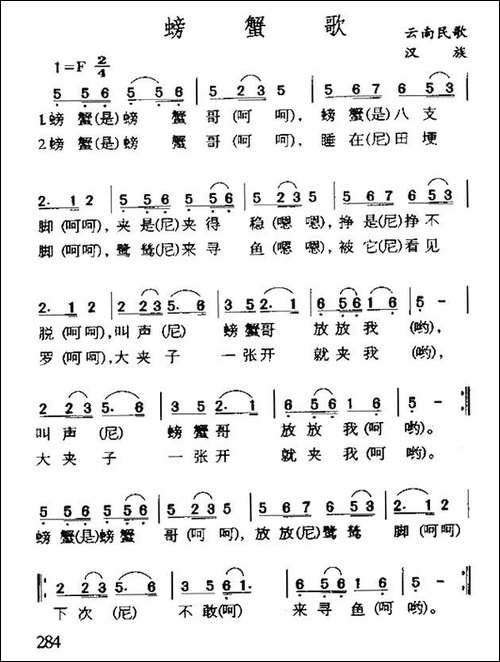 螃蟹歌
云南民歌
汉族
1=F 2/4
5 5 6 5 5 6 | 5 2 3 2 5 | 5 6 7 6 5 3 |
1.螃 蟹(是)螃 蟹 哥(呵 呵), 螃 蟹(是)八 支
2.螃 蟹(是)螃 蟹 哥(呵 呵), 睡 在(尼)田 埂
2. 1 2 | 5 5 6 5 5 6 | 2 5 3 2 1 | 5 6 7 6 5 3 |
脚(呵呵),夹 是(尼)夹 得 稳(嗯 嗯),挣 是(尼)挣 不
脚(呵呵),鹭 鸶(尼)来 寻 鱼(嗯 嗯),被 它(尼)看 见
2. 1 2 | 2 2 3 5. 6 | 3 5 2. 1 | 6 5 6 1 6 | 5 - |
脱(呵呵),叫 声(尼) 螃 蟹 哥 放 放 我(哟),
罗(呵呵),大 夹 子 一 张 开 就 夹 我(哟),
2 2 3 5. 6 | 3 5 2. 1 | 6 5 6 1 6 | 5 - :‖
叫 声(尼) 螃 蟹 哥 放 放 我(呵 哟)。
大 夹 子 一 张 开 就 夹 我(呵 哟)。
5 5 6 5 5 6 | 5 2 3 2 1 | 5 6 7 6 5 3 | 2. 1 2 |
螃 蟹(是)螃 蟹 哥(呵 呵),放 放(尼)鹭 鸶 脚(呵呵)
‖: 2 2 3 5. 6 | 3 5 6 1. | 6 5 6 1 6 | 5 - :‖
下 次(尼) 不 敢(呵) 来 寻 鱼(呵 哟)。
284